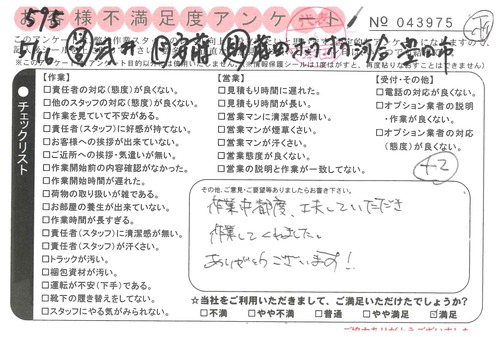 お客様不満足度アンケート
595
NO 043975
5/16
豊田市
【作業】
□責任者の対応(態度)が良くない。
□他のスタッフの対応(態度)が良くない。
□作業を見ていて不安がある。
□責任者(スタッフ)に好感が持てない。
□お客様への挨拶が出来ていない。
□ご近所への挨拶・気遣いが無い。
□作業開始前の内容確認がなかった。
□作業開始時間が遅れた。
□荷物の取り扱いが雑である。
□お部屋の養生が出来ていない。
□作業時間が長すぎる。
□責任者(スタッフ)に清潔感が無い。
□責任者(スタッフ)が汗くさい。
□トラックが汚い。
□梱包資材が汚い。
□運転が不安(下手)である。
□靴下の履き替えをしてない。
□スタッフにやる気がみられない。
【営業】
□見積もり時間に遅れた。
□見積もり時間が長い。
□営業マンに清潔感が無い。
□営業マンが煙草くさい。
□営業マンが汗くさい。
□営業態度が良くない。
□営業の説明と作業が一致してない。
【受付・その他】
□電話の対応が良くない。
□オプション業者の説明
・作業が良くない。
□オプション業者の対応
(態度)が良くない。
チェックリスト
+2
その他、ご意見・ご要望等ありましたらお書き下さい。
作業中都度、工夫していただき
作業してくれました。
ありがとうございます!
☆当社をご利用いただきまして、ご満足いただけたでしょうか?
□不満 □やや不満 □普通 □やや満足 ☑満足
ご協力ありがとうございました